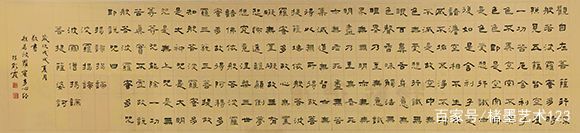 觀自在菩薩行深般若波
羅蜜多時照見五蘊皆空
度一切苦厄舍利子
色不異空空不異色
色即是空空即是色
受想行識亦復如是
舍利子是諸法空相
不生不滅不垢不淨
不增不減是故空中無
色無受想行識無眼耳鼻
舌身意無色聲香味觸法
無眼界乃至無意識界
無無明亦無無明盡
乃至無老死亦無老死盡
無苦集滅道無智亦無得
以無所得故菩提薩埵
依般若波羅蜜多故
心無罣礙無罣礙故
無有恐怖遠離顛倒夢想
究竟涅槃三世諸佛
依般若波羅蜜多故
得阿耨多羅三藐三菩提
故知般若波羅蜜多
是大神咒是大明咒
是無上咒是無等等咒
能除一切苦真實不虛
故說般若波羅蜜多咒
即說咒曰
揭諦揭諦
波羅揭諦
波羅僧揭諦
菩提薩婆訶
歲次戊戌夏月
敬書
般若波羅蜜多心經
百家号/楮墨艺术123